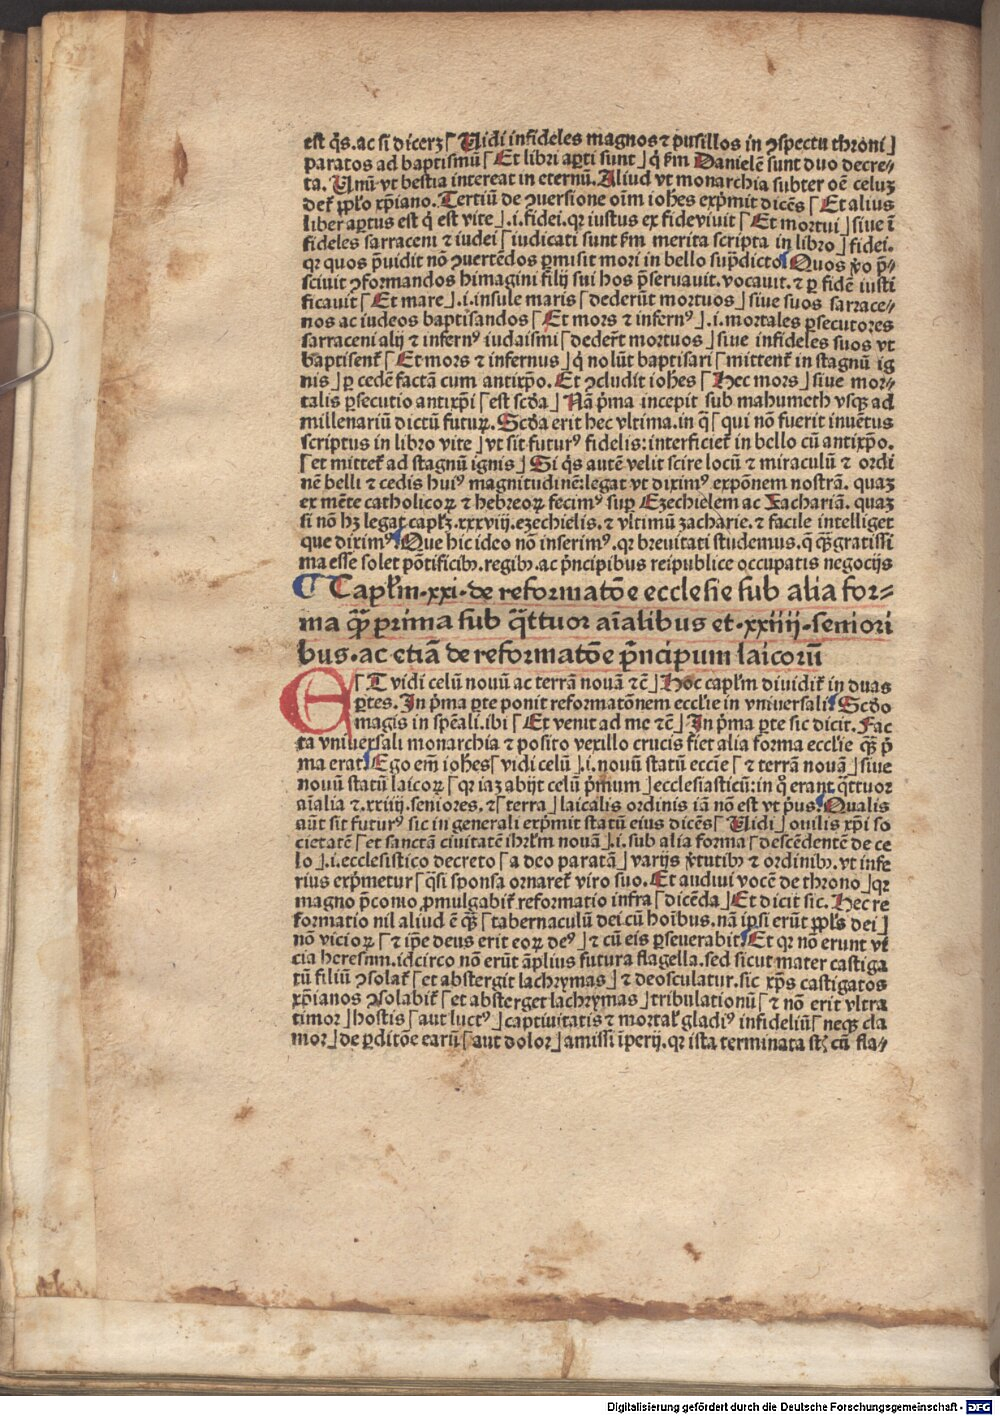 est q̄s. ac si dicerꝫ ⌈Uidi infideles magnos ⁊ pusillos in ꝯspectu throni⌋
paratos ad baptismū ⌈Et libri aꝑti sunt⌋ q̄ ẜm Danielē sunt duo decre-
ta. Unū vt bestia intereat in eternū. Aliud vt monarchia subter oē celuꝫ
det᷑ ppl̓o xp̄iano. Tertiū de ꝯuersione oīm ioh̓es exp̄mit dicēs ⌈Et alius
liber aꝑtus est q̄ est vite⌋ .i. fidei. qꝛ iustus ex fide viuit ⌈Et mortui⌋ siue ī
fideles sarraceni ⁊ iudei ⌈iudicati sunt ẜm merita scripta in libro⌋ fidei.
qꝛ quos p̄uidit nō ꝯuertēdos ꝑmisit mori in bello sup̄dicto Quos ꝟo p̄-
sciuit ꝯformandos himagini filij sui hos p̄seruauit. vocauit. ⁊ ꝑ fidē iusti
ficauit ⌈Et mare⌋ .i. insule maris ⌈dederūt mortuos⌋ siue suos sarrace-
nos ac iudeos baptisandos ⌈Et mors ⁊ infernꝰ⌋ .i. mortales ꝑsecutores
sarraceni alij ⁊ infernꝰ iudaismi ⌈dedert̄ mortuos⌋ siue infideles suos vt
baptisent᷑ ⌈Et mors ⁊ infernus⌋ q̄ nolūt baptisari ⌈mittent᷑ in stagnū ig
nis⌋ ꝑ cedē factā cum antixp̄o. Et ꝯcludit ioh̓es ⌈Hec mors⌋ siue mor-
talis ꝑsecutio antixp̄i ⌈est scd̓a⌋ Nā p̄ma incepit sub mahumeth vsqꝫ ad
millenariū dictū futuꝝ. Scd̓a erit hec vltima. in q̄ ⌈qui nō fuerit inuētus
scriptus in libro vite⌋ vt sit futurꝰ fidelis: interficiet᷑ in bello cū antixp̄o.
⌈et mittet᷑ ad stagnū ignis⌋ Si q̄s autē velit scire locū ⁊ miraculū ⁊ ordi
nē belli ⁊ cedis huiꝰ magnitudinē: legat vt diximꝰ expōnem nostrā. quaꝫ
ex mēte catholicoꝝ ⁊ hebreoꝝ fecimꝰ suꝑ Ezechielem ac Zachariā. quaꝫ
si nō hꝫ legat capl̓ꝫ .xxxviij. ezechielis. ⁊ vltimū zacharie. ⁊ facile intelliget
que diximꝰ Que hic ideo nō inserimꝰ. qꝛ breuitati studemus. q̄ qꝫ gratissi
ma esse solet pōtificibꝫ. regibꝫ. ac p̄ncipibus reipublice occupatis negocijs
¶ Capl̓m .xxi. de reformatōe ecclesie sub alia for-
ma qꝫ̄ prima sub q̄ttuor aīalibus et .xxiiij. seniori
bus. ac etiā de reformatōe p̄ncipum laicorū
E ⌈T vidi celū nouū ac terrā nouā ⁊c̄⌋ Hoc capl̓m diuidit᷑ in duas
ꝑtes. In p̄ma ꝑte ponit reformatōnem eccl̓ie in vniuersali. Scd̓o
magis in spēali. ibi ⌈Et venit ad me ⁊c̄⌋ In p̄ma ꝑte sic dicit. Fac
ta vniuersali monarchia ⁊ posito vexillo crucis fiet alia forma eccl̓ie qꝫ̄ p̄
ma erat. Ego em̄ ioh̓es ⌈vidi celū⌋ .i. nouū statū ecc̄ie ⌈⁊ terrā nouā⌋ siue
nouū statū laicoꝝ ⌈qꝛ iaꝫ abijt celū p̄mum⌋ ecclesiasticū: in q̊ erant q̄ttuor
aīalia ⁊ .xxiiij. seniores. ⁊ ⌈terra⌋ laicalis ordinis iā nō est vt p̄us. Qualis
aūt sit futurꝰ sic in generali exp̄mit statū eius dicēs ⌈Uidi⌋ ouilis xp̄i so
cietatē ⌈et sanctā ciuitatē ihrl̓m nouā⌋ .i. sub alia forma ⌈descēdentē de ce
lo⌋ .i. ecclesistico decreto ⌈a deo paratā⌋ varijs ꝟtutibꝫ ⁊ ordinibꝫ. vt infe
rius exp̄metur ⌈q̄si sponsa ornaret᷑ viro suo. Et audiui vocē de throno⌋ qꝛ
magno p̄conio ꝓmulgabit᷑ reformatio infra ⌈dicēda⌋ Et dicit sic. Hec re
formatio nil aliud ē qꝫ̄ ⌈tabernaculū dei cū hoībus. nā ip̄si erūt ppl̓s dei⌋
nō vicioꝝ ⌈⁊ ip̄e deus erit eoꝝ deꝰ⌋ ⁊ cū eis ꝑseuerabit. Et qꝛ nō erunt vi
cia heresum. idcirco nō erūt āplius futura flagella. sed sicut mater castiga
tū filiū ꝯsolat᷑ ⌈et abstergit lachrymas⌋ ⁊ deosculatur. sic xp̄s castigatos
xp̄ianos ꝯsolabit᷑ ⌈et absterget lachrymas⌋ tribulationū ⌈⁊ nō erit vltra
timor⌋ hostis ⌈aut luctꝰ⌋ captiuitatis ⁊ mortal̓ gladiꝰ infideliū ⌈neqꝫ cla
mor⌋ de ꝑditōe earū ⌈aut dolor⌋ amissi īperij. qꝛ ista terminata st̄. cū fla-
Digitalisierung gefördert durch die Deutsche Forschungsgemeinschaft - DFG